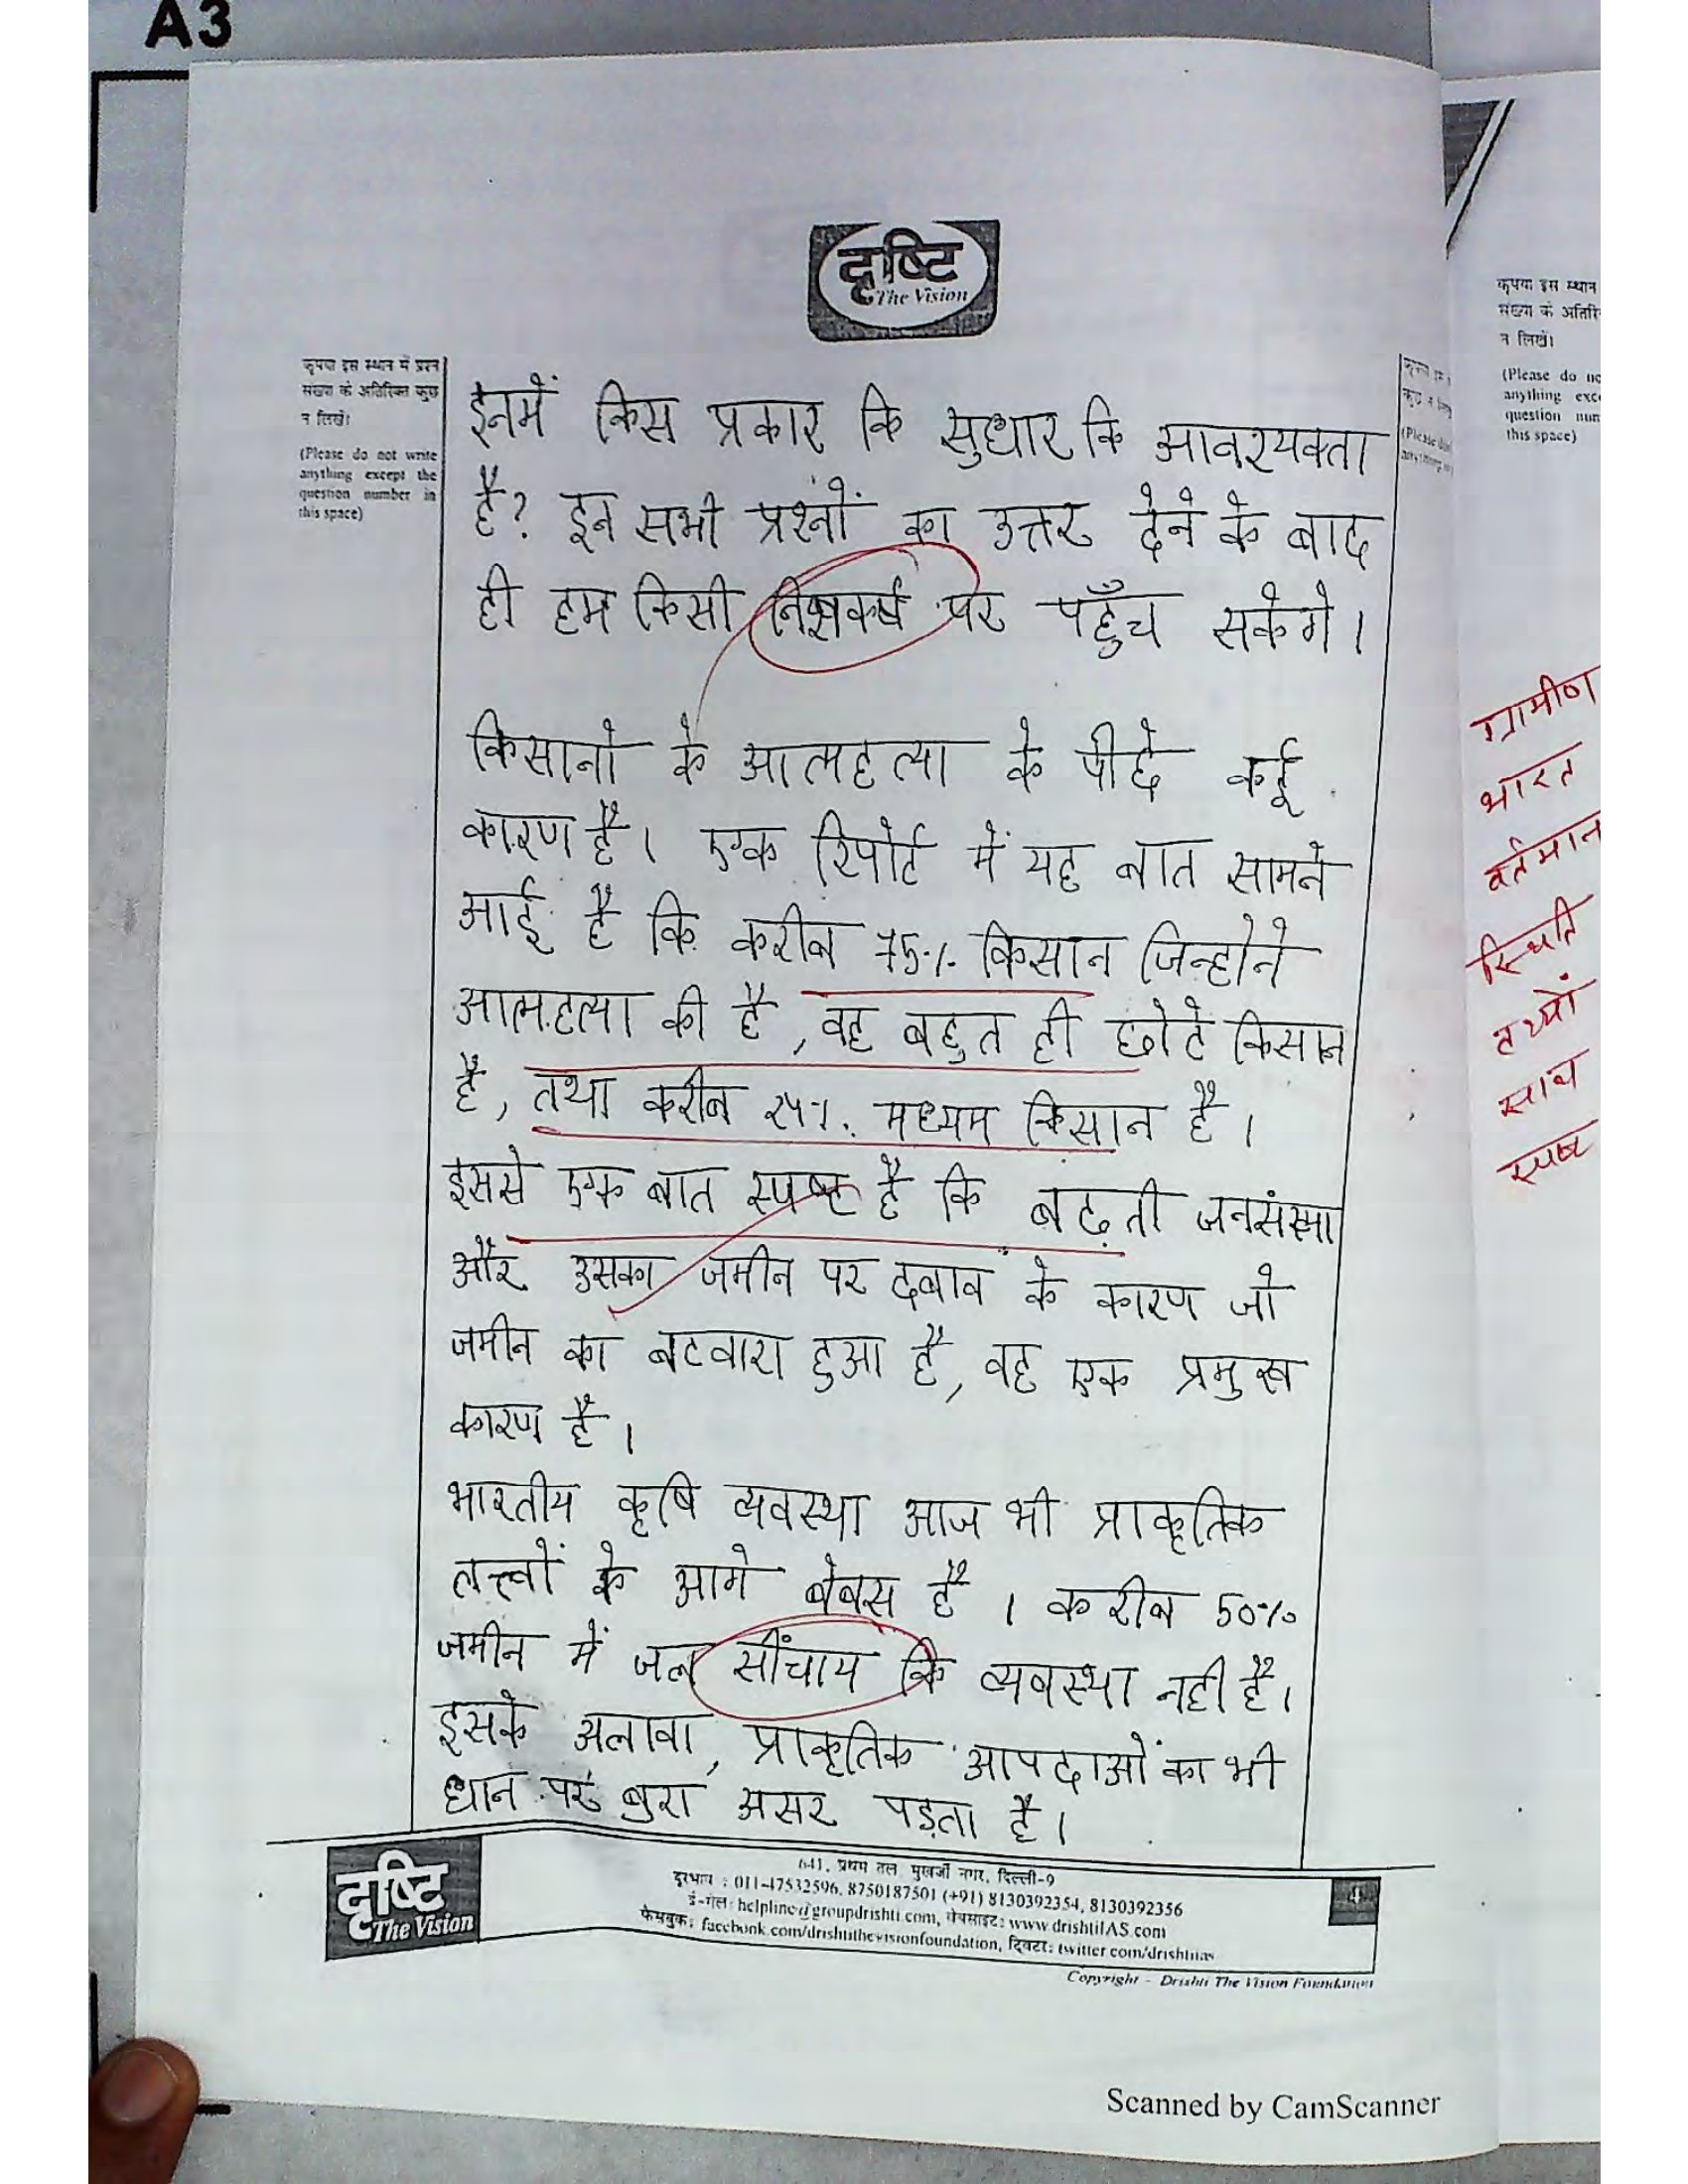 A3
दृष्टि
The Vision
कृपया इस स्थान में प्रश्न
संख्या के अतिरिक्त कुछ
न लिखें।
(Please do not write
anything except the
question number in
this space)
इनमें किस प्रकार कि सुधार कि आवश्यक्ता
है? इन सभी प्रश्नों का उत्तर देने के बाद
ही हम किसी निष्कर्ष पर पहुँच सकेगे।
किसानो के आत्महत्या के पीछे कई
कारण है। एक रिपोर्ट में यह बात सामने
आई है कि करीब 75% किसान जिन्होने
आत्महत्या की है, वह बहुत ही छोटे किसान
है, तथा करीब 25%. मध्यम किसान है।
इससे एक बात स्पष्ट है कि बढ़ती जनसंख्या
और उसका जमीन पर दबाव के कारण जो
जमीन का बटवारा हुआ है, वह एक प्रमुख
कारण है।
भारतीय कृषि व्यवस्था आज भी प्राकृतिक
तत्त्वों के आगे बेबस है। करीब 50%
जमीन में जल सींचाय कि व्यवस्था नही है।
इसके अलावा, प्राकृतिक आपदाओं का भी
धान पर बुरा असर पड़ता है।
कृपया इस स्थान
संख्या के अतिरि
न लिखें।
(Please do no
anything exce
question num
this space)
ग्रामीण
भारत
वर्तमान
स्थिति
तथ्यों
साथ
स्पष्ट
दृष्टि
The Vision
641, प्रथम तल, मुखर्जी नगर, दिल्ली-9
दूरभाष : 011-47532596, 8750187501 (+91) 8130392354, 8130392356
ई-मेल: helpline@groupdrishti.com, वेबसाइट: www.drishtiIAS.com
फेसबुक: facebook.com/drishtithevisionfoundation, ट्विटर: twitter.com/drishtiias
4
Copyright - Drishti The Vision Foundation
Scanned by CamScanner